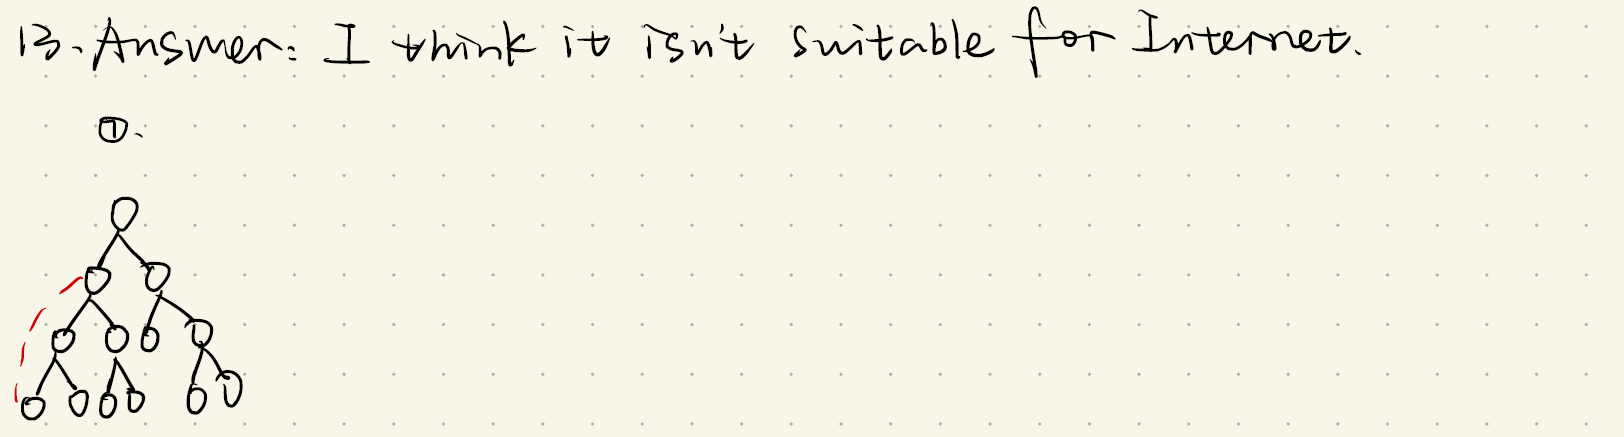 13. Answer: I think it isn't suitable for Internet.
①.